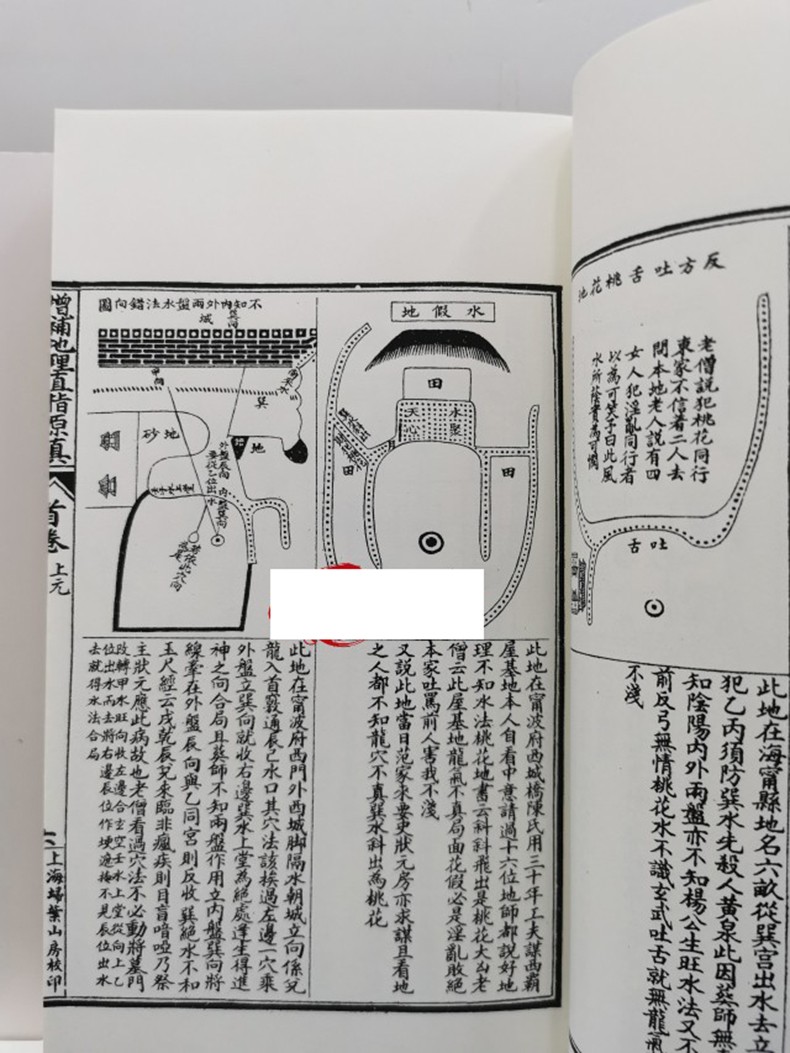 反方吐舌桃花地
老僧説犯桃花同行
東家不信着二人去
問本地老人說有四
女人犯淫亂同行者
以為可笑予曰此風
水所蔭實為可憫
吐舌
此地在海甯縣地名六畝從巽宮出水去立
犯乙丙須防巽水先殺人黄泉此因葬師無
知陰陽内外兩盤亦不知楊公生旺水法又不
前反弓無情桃花水不識玄武吐舌就無龍氣
不淺
水假地
田
水聚
天心
田
田
此地在甯波府西城橋陳氏用三十年工夫謀西廟
屋基地本人自看中意請過十六位地師都說好地
理不知水法桃花地書云斜斜飛出是桃花大凶老
僧云此屋基地龍氣不真局面花假必是淫亂敗絕
本家吐罵前人害我不淺
又說此地當日范家求要史狀元房亦求謀且看地
之人都不知龍穴不真巽水斜出為桃花
不知内外兩盤水法錯向圖
城
巽
地
砂
地
外盤辰向
要從乙位出水
内盤巽向
此地在甯波府西門外西城脚隔水朝城立向係兌
龍入首竅通辰巳水口其穴法該挨過左邊一穴乘
外盤立巽向就收右邊巽水上堂為絕處逢生得進
神之向合局且葬師不知兩盤作用立内盤巽向將
線牽在外盤辰向與乙同宮則反收巽絕水不和
玉尺經云戌乾辰兌來臨非瘋疾則目盲喑啞乃祭
主狀元應此病故也老僧看過穴法不必動將墓門
改轉甲水旺向收左邊合玄空壬水上堂從向上乙
位出水而去將右邊辰位作埂遮掩不見辰位出水
去就得水法合局
增補地理直指原真
首卷
上元
上海埽葉山房校印